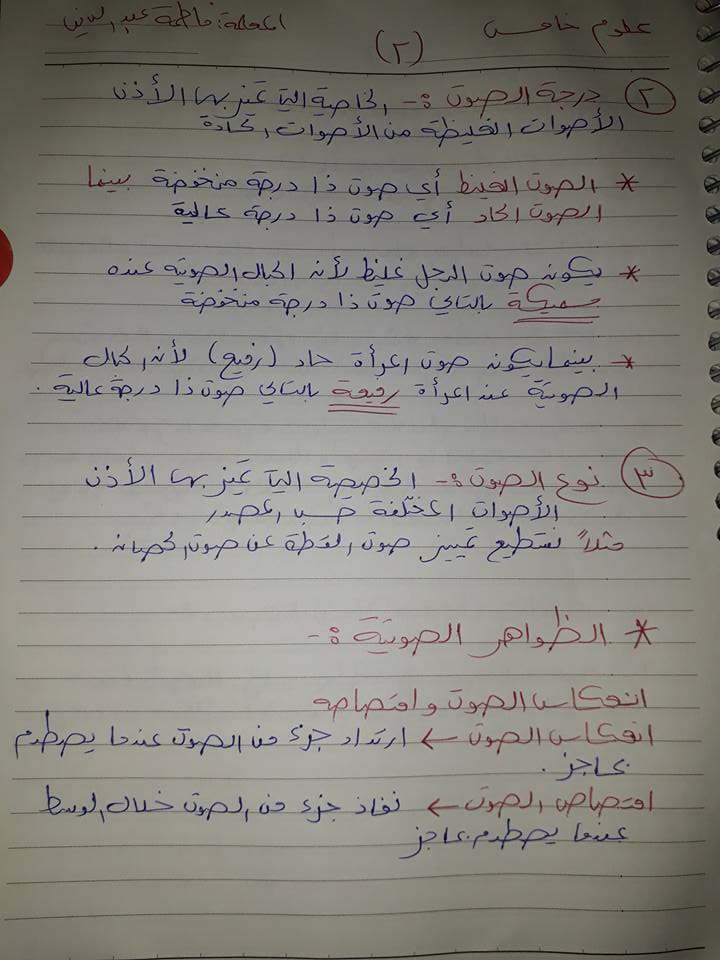 علوم خامس
(٢)
المعلمة: فاطمة عبد الدين
٢ درجة الصوت :- الخاصية التي تميز بها الأذن
الأصوات الغليظة من الأصوات الحادة
* الصوت الغليظ أي صوت ذا درجة منخفضة بينما
الصوت الحاد أي صوت ذا درجة عالية
* يكون صوت الرجل غليظ لأن الحبال الصوتية عنده
سميكة بالتالي صوت ذا درجة منخفضة
* بينما يكون صوت امرأة حاد (رفيع) لأن الحبال
الصوتية عند امرأة رفيعة بالتالي صوت ذا درجة عالية.
٣ نوع الصوت :- الخصيصة التي تميز بها الأذن
الأصوات المختلفة حسب المصدر
مثلاً نستطيع تمييز صوت القطة عن صوت الحصان.
* الظواهر الصوتية :-
انعكاس الصوت وامتصاصه
انعكاس الصوت ← ارتداد جزء من الصوت عندما يصطدم
بحاجز.
امتصاص الصوت ← نفاذ جزء من الصوت خلال الوسط
عندما يصطدم بحاجز